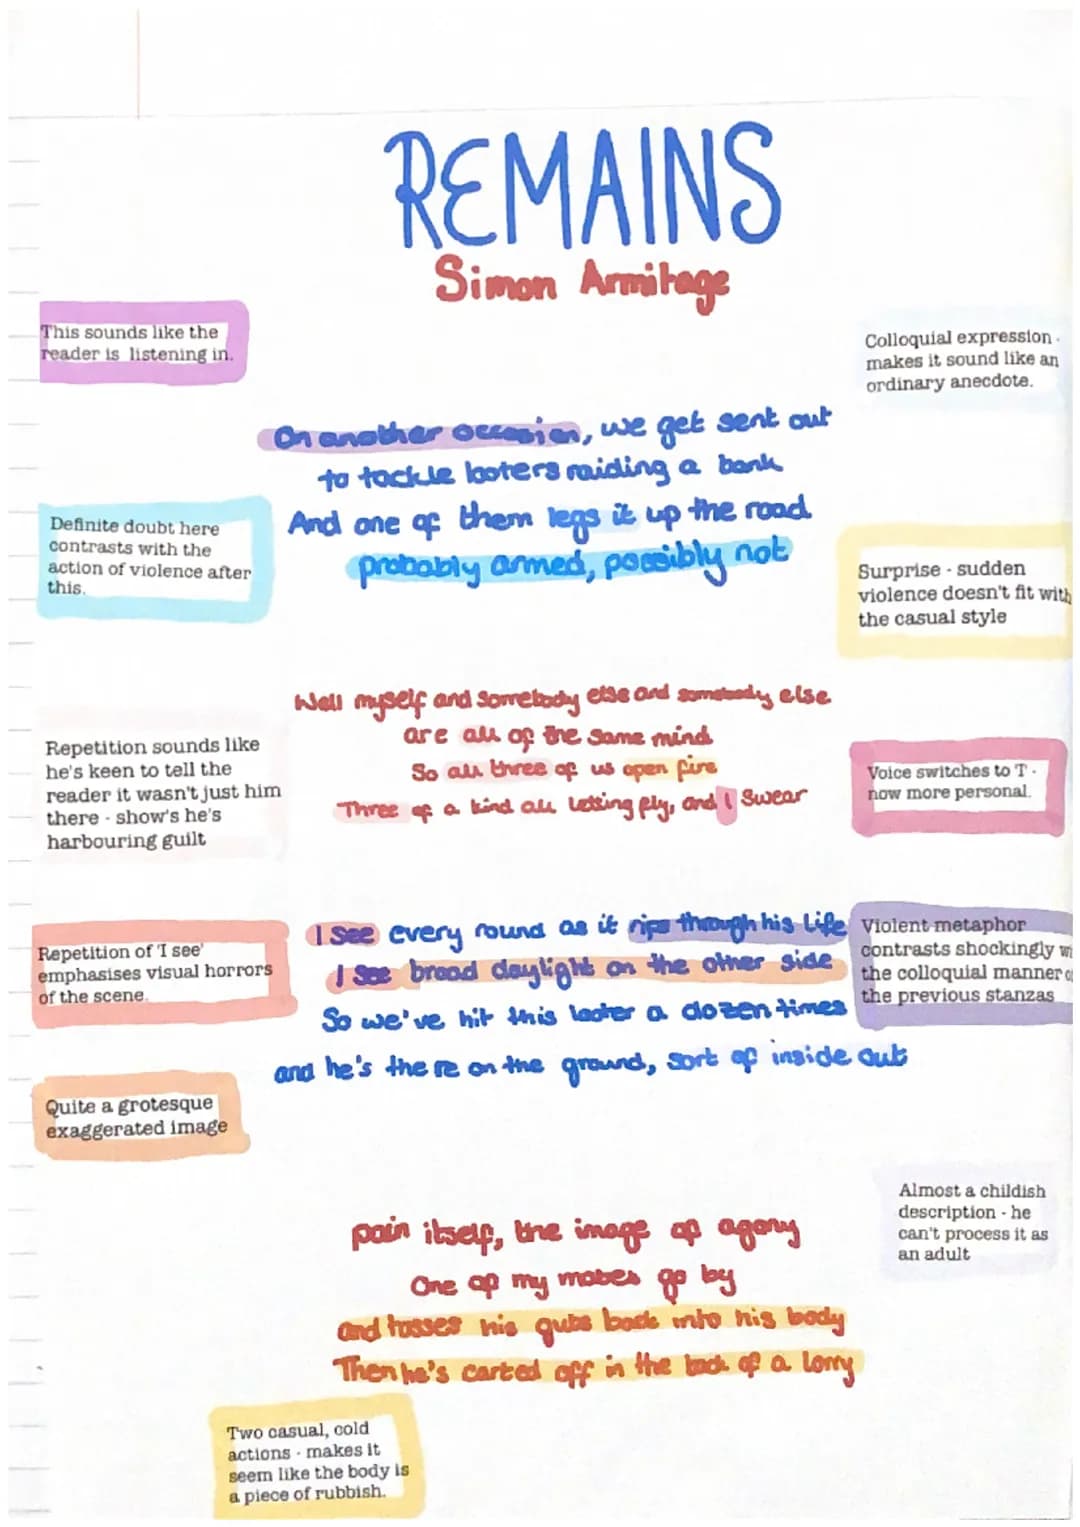 REMAINS
Simon Armitage
This sounds like the
reader is listening in.
Colloquial expression -
makes it sound like an
ordinary anecdote.
On another occasion, we get sent out
to tackle looters raiding a bank
And one of them legs it up the road
probably armed, possibly not
Definite doubt here
contrasts with the
action of violence after
this.
Surprise - sudden
violence doesn't fit with
the casual style
Well myself and somebody else and somebody else
are all of the same mind
So all three of us open fire
Three of a kind all letting fly, and I swear
Repetition sounds like
he's keen to tell the
reader it wasn't just him
there - show's he's
harbouring guilt
Voice switches to 'I' -
now more personal.
I see every round as it rips through his life
I see broad daylight on the other side
So we've hit this looter a dozen times
and he's there on the ground, sort of inside out
Repetition of 'I see'
emphasises visual horrors
of the scene.
Violent metaphor
contrasts shockingly wi
the colloquial manner o
the previous stanzas
Quite a grotesque
exaggerated image
Almost a childish
description - he
can't process it as
an adult
pain itself, the image of agony
One of my mates go by
and tosses his guts back into his body
Then he's carted off in the back of a lorry
Two casual, cold
actions - makes it
seem like the body is
a piece of rubbish.